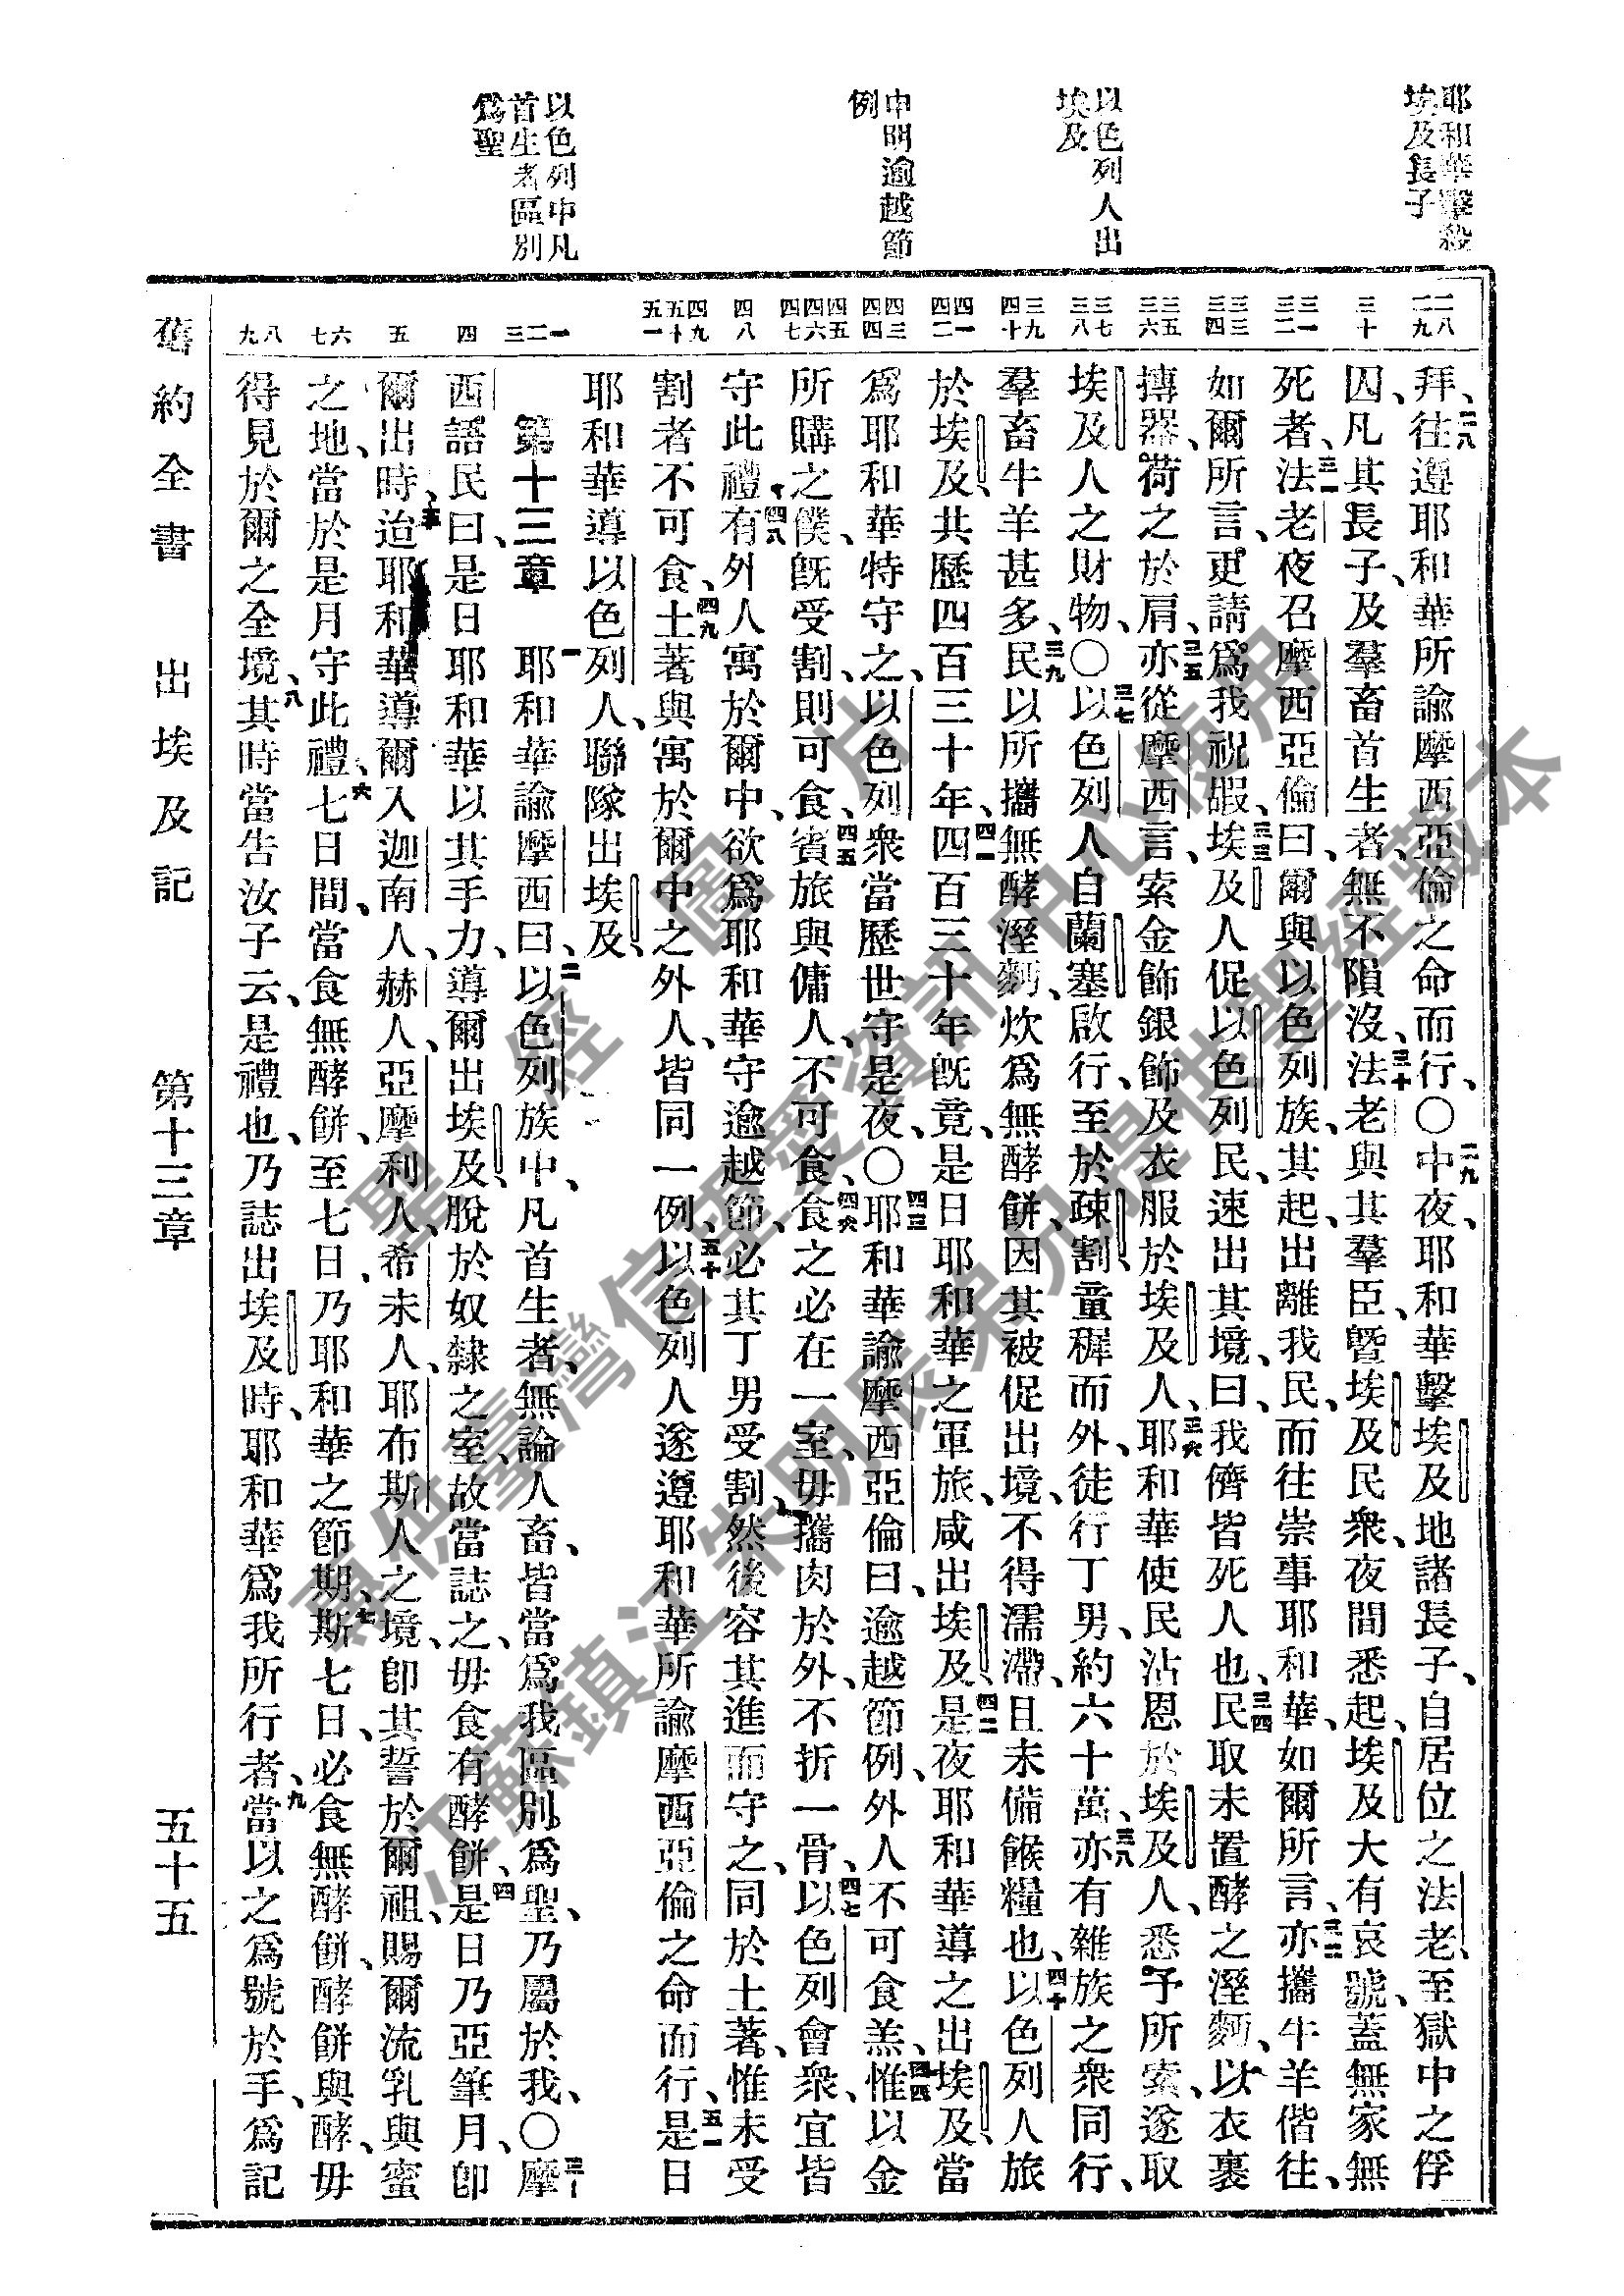 耶和華擊殺
埃及長子
以色列人出
埃及
申明逾越節
例
以色列中凡
首生者區別
爲聖
二八 二九 三十 三一 三二 三三 三四 三五 三六 三七 三八 三九 四十 四一 四二 四三 四四 四五 四六 四七 四八 四九 五十 五一 一 二 三 四 五 六 七 八 九
拜、二八往遵耶和華所諭摩西亞倫之命而行、〇二九中夜、耶和華擊埃及地諸長子、自居位之法老、至獄中之俘
囚、凡其長子、及羣畜首生者、無不隕沒、三十法老與其羣臣、曁埃及民衆、夜間悉起、埃及大有哀號、蓋無家無
死者、三一法老夜召摩西亞倫曰、爾與以色列族、其起、出離我民、而往崇事耶和華、如爾所言、三二亦攜牛羊偕往、
如爾所言、更請爲我祝嘏、三三埃及人促以色列民、速出其境、曰、我儕皆死人也、三四民取未置酵之溼麪、以衣裹
摶器、荷之於肩、三五亦從摩西言、索金飾銀飾及衣服於埃及人、三六耶和華使民沾恩於埃及人、悉予所索、遂取
埃及人之財物、〇三七以色列人自蘭塞啟行、至於疎割、童穉而外、徒行丁男、約六十萬、三八亦有雜族之衆同行、
羣畜牛羊甚多、三九民以所攜無酵溼麪、炊爲無酵餅、因其被促出境、不得濡滯、且未備餱糧也、四十以色列人旅
於埃及、共歷四百三十年、四一四百三十年旣竟、是日耶和華之軍旅、咸出埃及、四二是夜耶和華導之出埃及、當
爲耶和華特守之、以色列衆當歷世守是夜、〇四三耶和華諭摩西亞倫曰、逾越節例、外人不可食羔、四四惟以金
所購之僕、旣受割、則可食、四五賓旅與傭人不可食、四六食之必在一室、毋攜肉於外、不折一骨、四七以色列會衆、宜皆
守此禮、四八有外人寓於爾中、欲爲耶和華守逾越節、必其丁男受割、然後容其進而守之、同於土著、惟未受
割者不可食、四九土著與寓於爾中之外人、皆同一例、五十以色列人遂遵耶和華所諭摩西亞倫之命而行、五一是日
耶和華導以色列人、聯隊出埃及、
第十三章 一耶和華諭摩西曰、二以色列族中、凡首生者、無論人畜、皆當爲我區別爲聖、乃屬於我、〇三摩
西語民曰、是日耶和華以其手力、導爾出埃及、脫於奴隸之室、故當誌之、毋食有酵餅、四是日乃亞筆月、卽
爾出時、五迨耶和華導爾入迦南人、赫人、亞摩利人、希未人、耶布斯人之境、卽其誓於爾祖、賜爾流乳與蜜
之地、當於是月守此禮、六七日間、當食無酵餅、至七日、乃耶和華之節期、七斯七日、必食無酵餅、酵餅與酵、毋
得見於爾之全境、八其時當告汝子云、是禮也、乃誌出埃及時、耶和華爲我所行者、九當以之爲號於手、爲記
舊約全書 出埃及記 第十三章 五十五
聖經圖片
專供臺灣信望愛資訊中心使用
江蘇鎮江朱明辰弟兄提供聖經藏本